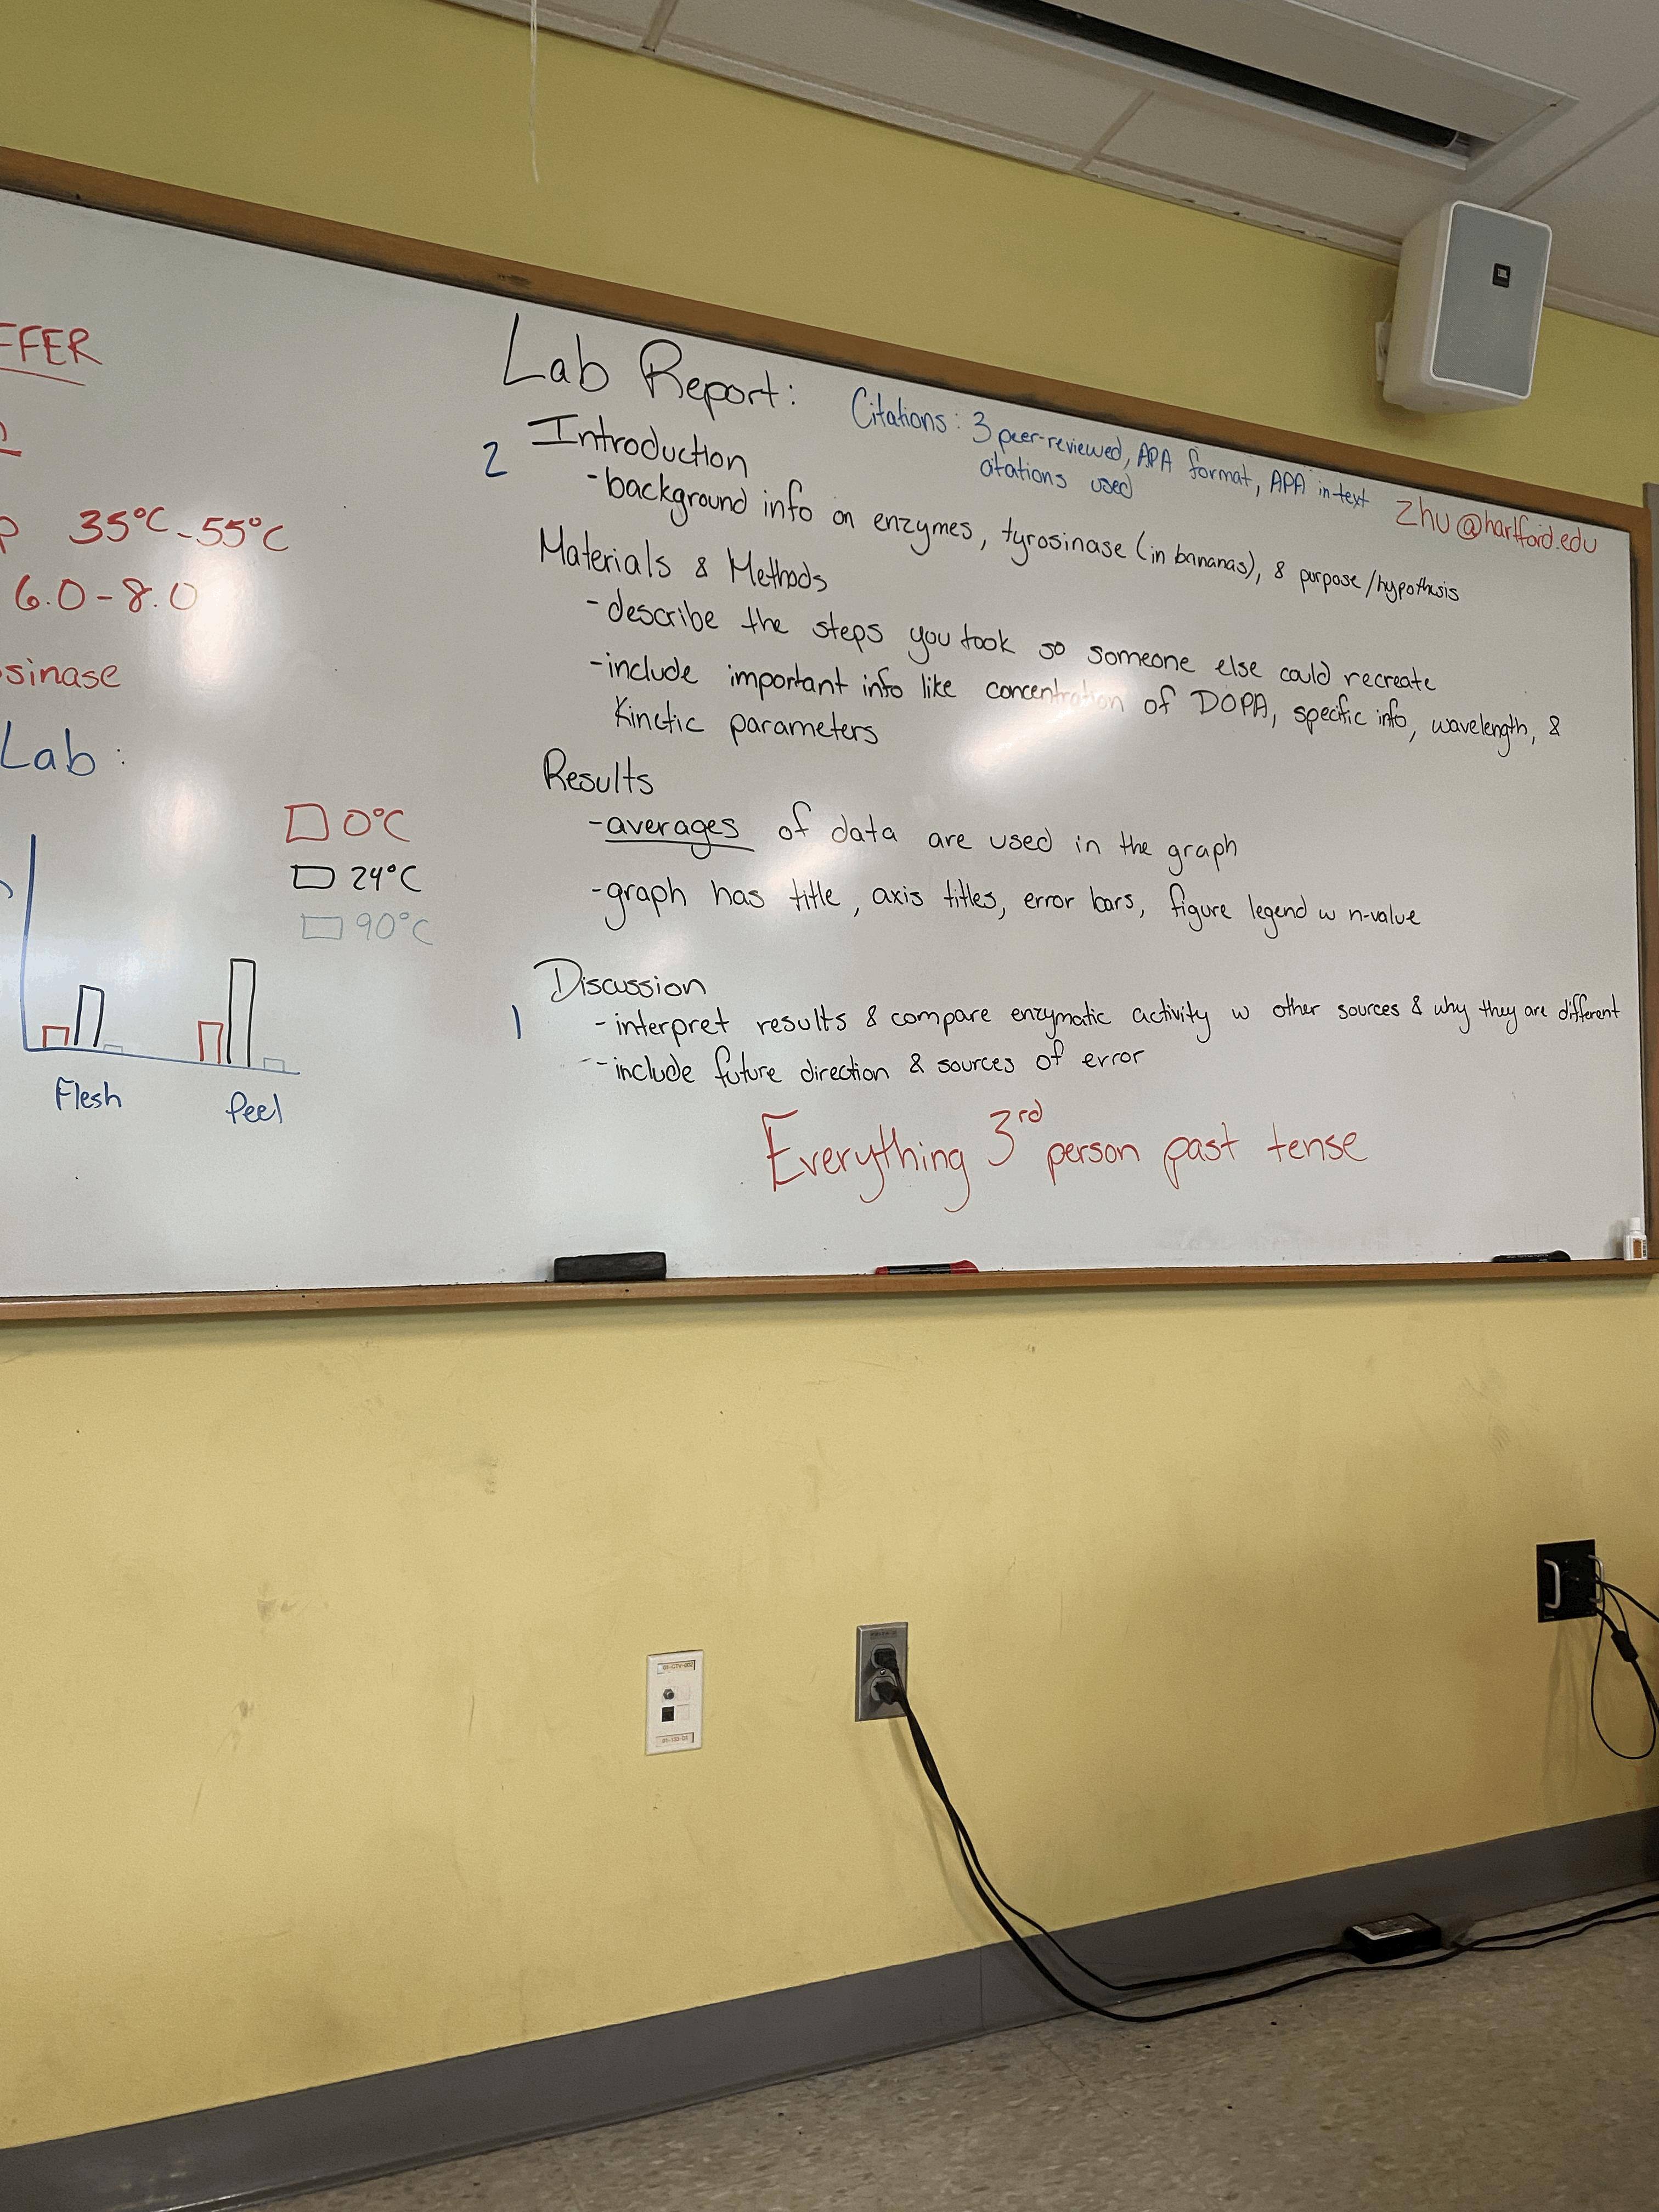 FFER
35°C-55°C
6.0-8.0
sinase
Lab:
0°C
24°C
90°C
Flesh
Peel
Lab Report:
Citations: 3 peer-reviewed, APA format, APA in-text
citations used
zhu@hartford.edu
2 Introduction
-background info on enzymes, tyrosinase (in bananas), & purpose/hypothesis
Materials & Methods
-describe the steps you took so someone else could recreate
-include important info like concentration of DOPA, specific info, wavelength, &
Kinetic parameters
Results
-averages of data are used in the graph
-graph has title, axis titles, error bars, figure legend w n-value
Discussion
1 -interpret results & compare enzymatic activity w other sources & why they are different
--include future direction & sources of error
Everything 3rd person past tense
JBL
01-CTV-002